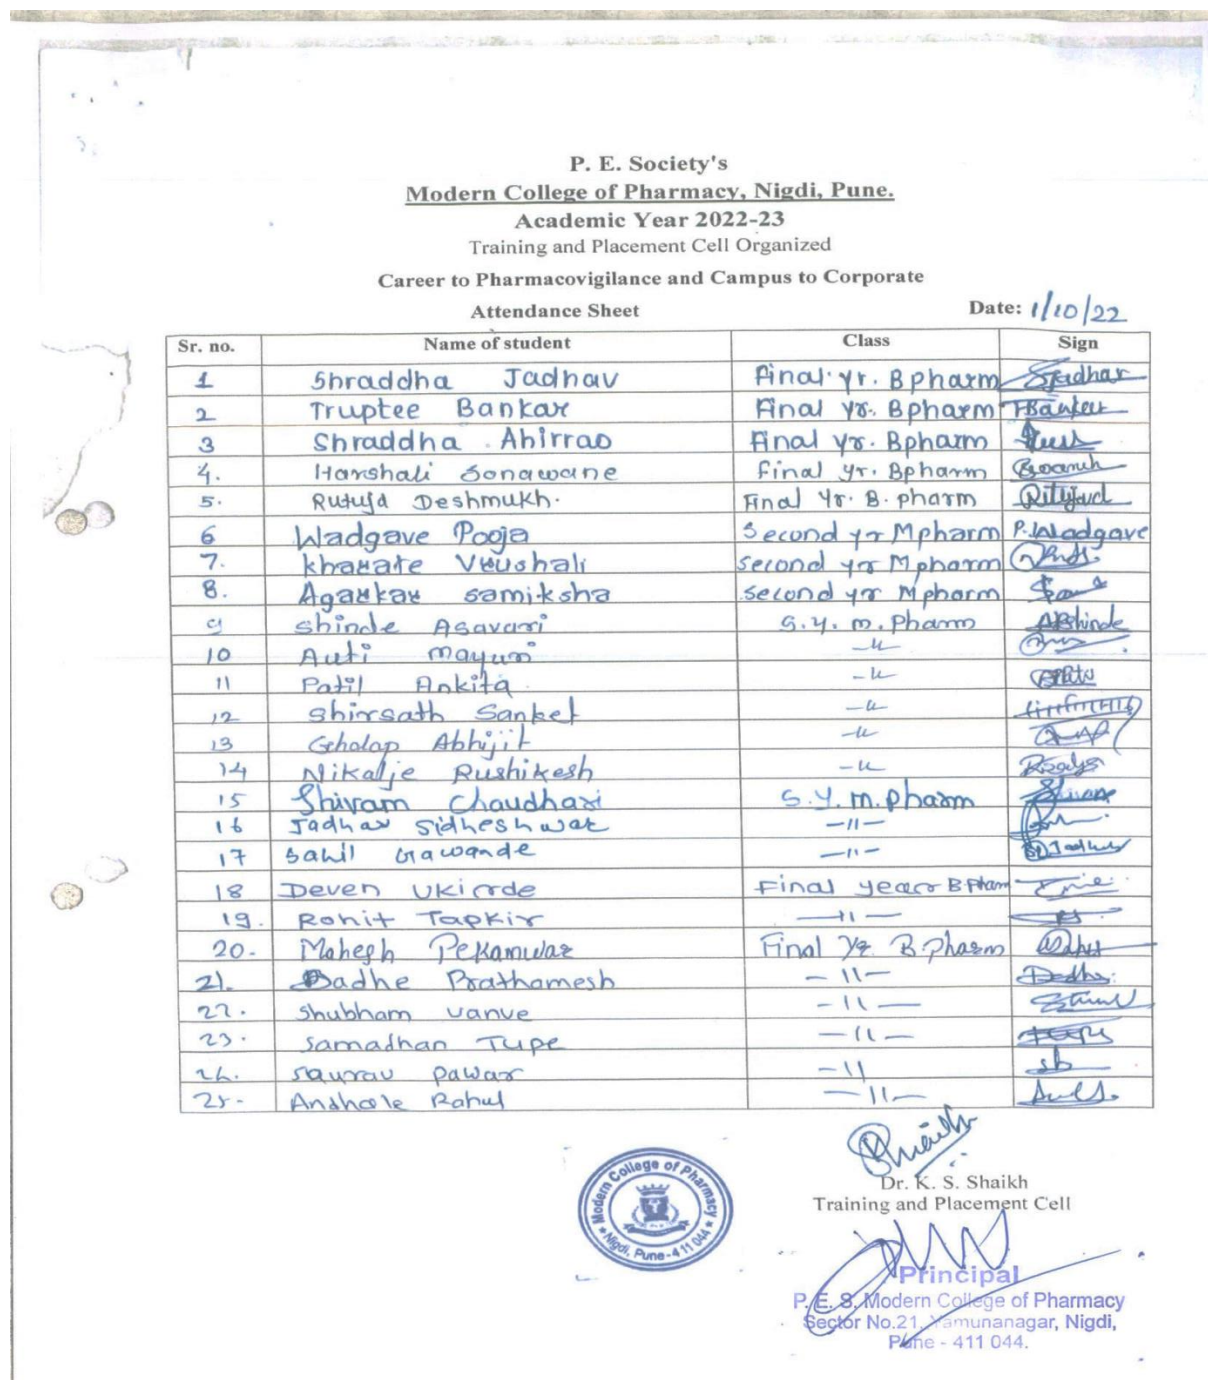 P. E. Society's
Modern College of Pharmacy, Nigdi, Pune.
Academic Year 2022-23
Training and Placement Cell Organized
Career to Pharmacovigilance and Campus to Corporate
Attendance Sheet Date: 1/10/22
Sr. no. Name of student Class Sign
1 Shraddha Jadhav Final yr. B pharm SJadhav
2 Truptee Bankar Final yr. Bpharm TBankar
3 Shraddha Ahirrao Final yr. Bpharm
4. Harshali Sonawane Final yr. Bpharm
5. Rutuja Deshmukh. Final Yr. B. pharm
6 Wadgave Pooja Second yr Mpharm P.Wadgave
7. kharate Vrushali second yr Mpharm
8. Agarkar samiksha second yr Mpharm
9 Shinde Asavari S.Y. M. Pharm ABshinde
10 Auti mayuri -"-
11 Patil Ankita -"-
12 Shirsath Sanket -"-
13 Gholap Abhijit -"-
14 Nikalje Rushikesh -"-
15 Shivam Chaudhari S.Y. M. pharm
16 Jadhav Sidheshwar -11-
17 Sahil Gawande -11-
18 Deven Ukirde Final year B Pham
19. Rohit Tapkir -11-
20. Mahesh Pekamwar Final Yr B. Pharm
21. Dadhe Prathamesh -11-
22. Shubham Vanve -11-
23. Samadhan Tupe -11-
24. Saurav Pawar -11
25- Andhale Rahul -11-
Dr. K. S. Shaikh
Training and Placement Cell
Modern College of Pharmacy
Nigdi, Pune-411 044
Principal
P. E. S. Modern College of Pharmacy
Sector No.21, Yamunanagar, Nigdi,
Pune - 411 044.